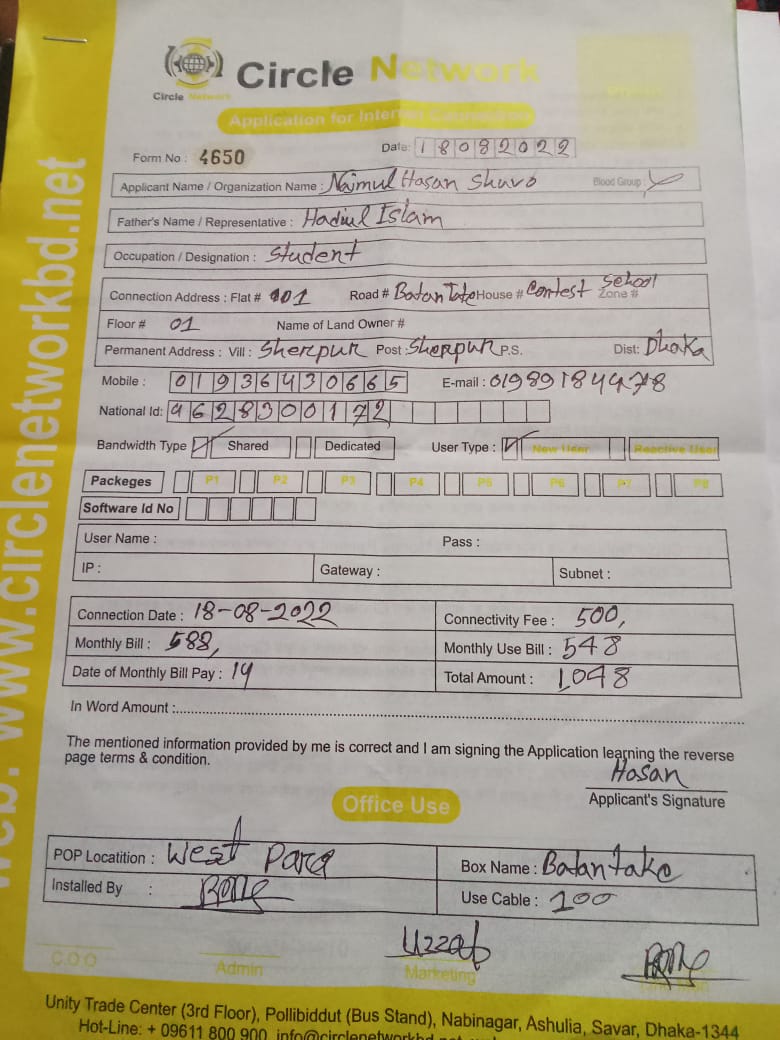 Circle Network
Circle Network
Application for Internet Connection
Form No : 4650
Date: 18082022
Applicant Name / Organization Name : Najmul Hasan Shuvo Blood Group :
Father's Name / Representative : Hadiul Islam
Occupation / Designation : Student
Connection Address : Flat # 101 Road # Batan Take House # Contest School Zone #
Floor # 01 Name of Land Owner #
Permanent Address : Vill : Sherpur Post : Sherpur P.S. Dist: Dhaka
Mobile : 01936430665 E-mail : 01989184478
National Id: 9628300172
Bandwidth Type Shared Dedicated User Type : New User Reactive User
Packeges P1 P2 P3 P4 P5 P6 P7 P8
Software Id No
User Name : Pass :
IP : Gateway : Subnet :
Connection Date : 18-08-2022 Connectivity Fee : 500,
Monthly Bill : 588, Monthly Use Bill : 548
Date of Monthly Bill Pay : 14 Total Amount : 1,048
In Word Amount :
The mentioned information provided by me is correct and I am signing the Application learning the reverse
page terms & condition.
Hasan
Applicant's Signature
Office Use
POP Locatition : West Para Box Name : Batantake
Installed By : Use Cable : 100
C.O.O Admin Marketing
Unity Trade Center (3rd Floor), Pollibiddut (Bus Stand), Nabinagar, Ashulia, Savar, Dhaka-1344
Hot-Line: + 09611 800 900, info@circlenetworkbd.net
web: www.circlenetworkbd.net